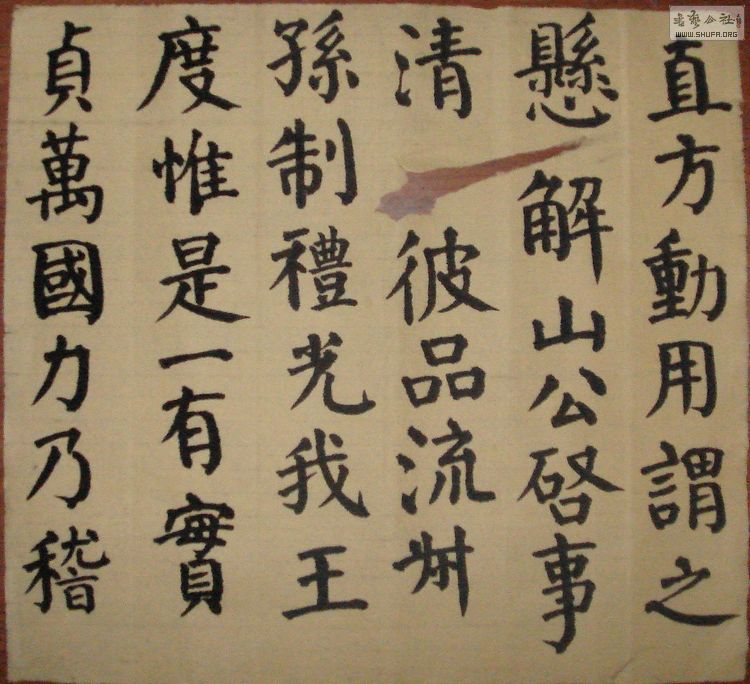 直方動用謂之
懸解山公啓事
清彼品流叔
孫制禮光我王
度惟是一有實
貞萬國力乃稽
書藝公社
WWW.SHUFA.ORG